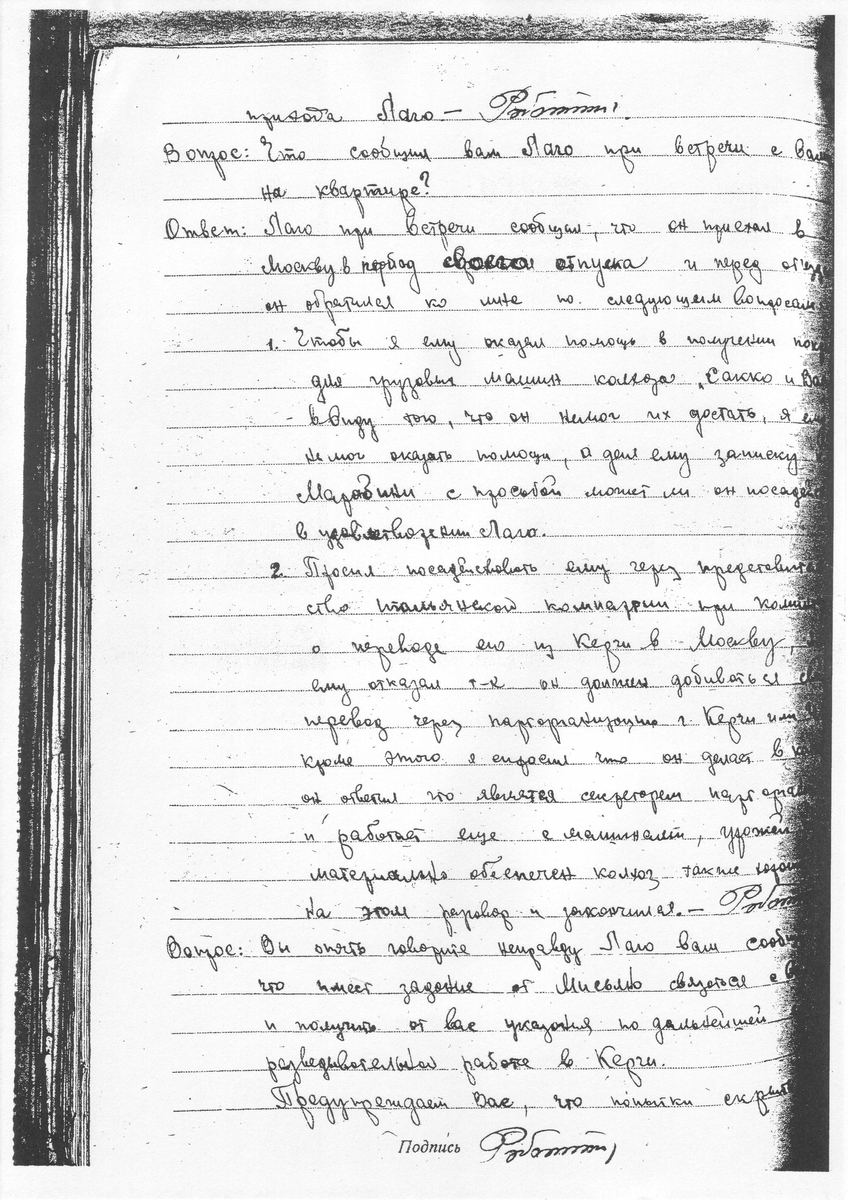 прихода Лаго – Роботти.
Вопрос: Что сообщил вам Лаго при встречи с Вами
на квартире?
Ответ: Лаго при встречи сообщил, что он приехал в
Москву в период своего отпуска и перед отъезд
он обратился ко мне по следующем вопросам
1. Чтобы я ему оказал помощь в получении пок
для грузовых машин колхоза „Сакко и Ван
ввиду того, что он немог их достать, я ему
не мог оказать помощи, а дал ему записку
Маработини с просьбой может ли он посадей
в удовлетворении Лаго.
2. Просил посадействовать ему через представит
ство итальянской компартии при Комин
о переводе его из Керчи в Москву, я
ему отказал т-к он должен добиваться св
перевод через парторганизацию г. Керчи или
кроме этого я спросил что он делает в к
он ответил что является секретарем парторгани
и работает еще с машинами, урожай
материально обеспечен колхоз также хорошо
на этом разговор и закончился. – Робот
Вопрос: Вы опять говорите неправду Лаго вам сооб
что имеет задание от Мисьяно связаться с в
и получить от вас указания по дальнейшей
разведывательной работе в Керчи.
Предупреждаем Вас, что попытки скрыт
Подпись Роботти